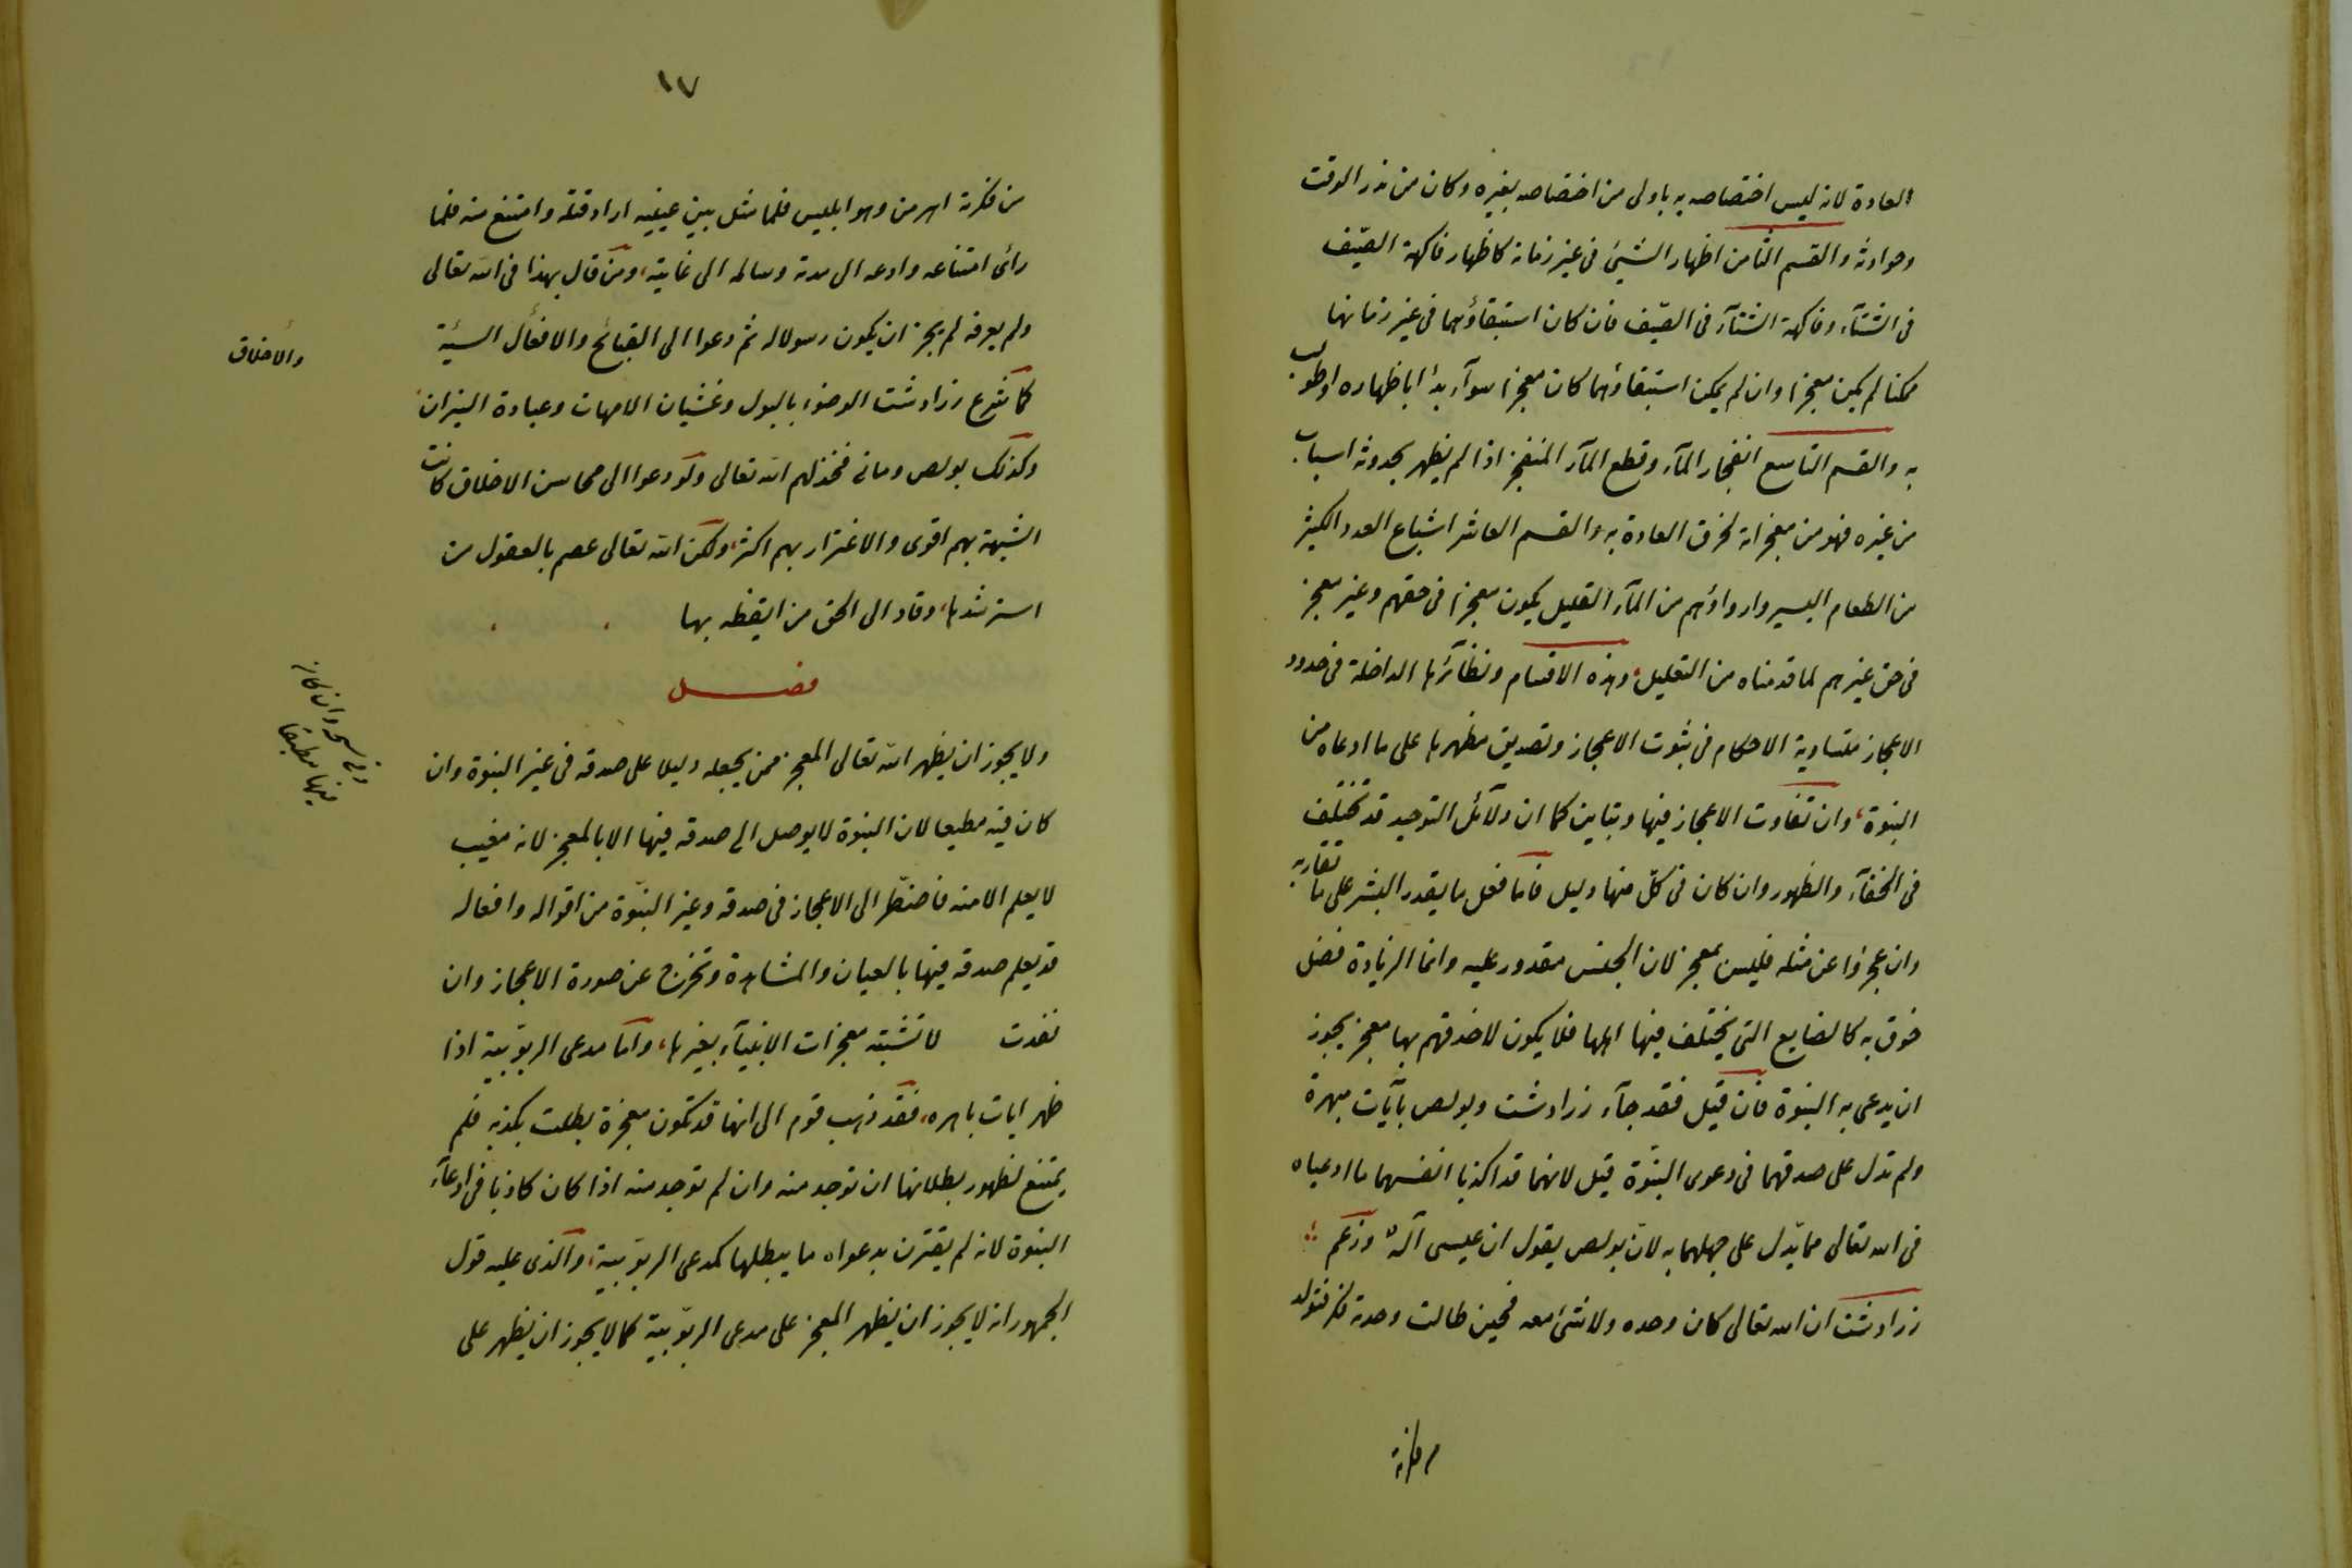 العادة لانه ليس اختصاصه به باولى من اختصاصه بغيره وكان من نذر الوقت
وحوادثه والقسم الثامن اظهار الشيئ فى غير زمانه كاظهار فاكهة الصيّف
فى الشتآء وفاكهة الشتآء فى الصيّف فان كان استبقاؤهما فى غير زمانهما
ممكنا لم يكن معجزا وان لم يمكن استبقاؤهما كان معجزا سوآء بدأ باظهاره او طولب
به والقسم التاسع انفجار المآء وقطع المآء المنفجر اذا لم يظهر بحدوثه اسباب
من غيره فهو من معجزاته لخرق العادة به والقسم العاشر اشباع العدد الكثير
من الطعام اليسير وارواؤهم من المآء القليل يكون معجزا فى حقهم وغير معجز
فى حق غيرهم لما قدمناه من التعليل، وهذه الاقسام ونظآئرها الداخلة فى حدود
الاعجاز متساوية الاحكام فى ثبوت الاعجاز وتصديق مظهرها على ما ادعاه من
النبوة، وان تفاوت الاعجاز فيها وتباين كما ان دلآئل التوحيد قد تختلف
فى الخفآء والظهور وان كان فى كلّ منها دليل فاما فعل ما يقدر البشر على ما تقاربه
وان عجزوا عن مثله فليس بمعجز لان الجنس مقدور عليه وانما الزيادة فضل
حذق به كالصنايع التى يختلف فيها اهلها فلا يكون لاحذقهم بها معجز يجوز
ان يدعى به النبوة فان قيل فقد جآء زرادشت وبولص بآيات مبهرة
ولم تدل على صدقهما فى دعوى النبوّة قيل لانهما قد اكذبا انفسهما ما ادعياه
فى الله تعالى مما يدّل على جهلهما به لانّ بولص يقول ان عيسى آلهٌ وزعم
زرادشت ان الله تعالى كان وحده ولا شئ معه فحين طالت وحدته فكر فتولد
من فكرته
١٧
من فكرته اهرمن وهو ابليس فلما مثل بين عينيه اراد قتله وامتنع منه فلما
رائ امتناعه وادعه الى مدة وسالمه الى غاية، ومن قال بهذا فى الله تعالى
ولم يعرفه لم يجز ان يكون رسولا له ثم دعوا الى القبائح والافعال السيئة
والاخلاق
كما شرع زرادشت الوضوء بالبول وغشيان الامهات وعبادة النيران
وكذلك بولص ومانى فخذلهم الله تعالى ولو دعوا الى محاسن الاخلاق كانت
الشبهة بهم اقوى والاغترار بهم اكثر، ولكن الله تعالى عصم بالعقول من
استرشدها، وقاد الى الحق من ايقظه بها
فصل
ولا يجوز ان يظهر الله تعالى المعجز ممن يجعله دليلا على صدقه فى غير النبوة وان
وفى نسخة وان كان
فيها مطيعا
كان فيه مطيعا لان النبوة لا يوصل الى صدقه فيها الا بالمعجز لانه مغيب
لا يعلم الا منه فاضطّر الى الاعجاز فى صدقه وغير النبوّة من اقواله وافعاله
قد يعلم صدقه فيها بالعيان والمشاهدة وتخرج عن صورة الاعجاز وان
نفدت لا تشبه معجزات الانبيآء بغيرها، واما مدعى الربوّبية اذا
ظهر ايات باهره، فقد ذهب قوم الى انها قد تكون معجزة بطلت بكذبه فلم
يمتنع لظهور بطلانها ان توجد منه وان لم توجد منه اذا كان كاذبا فى ادعآء
النبوة لانه لم يقترن بدعواه ما يبطلها كمدعى الربوّبية، والذى عليه قول
الجمهور انه لا يجوز ان يظهر المعجز على مدعى الربوّبية كما لا يجوز ان يظهر على